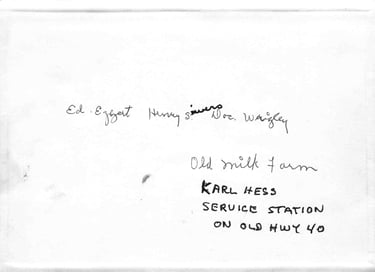 Ed. Eggert Henry Sivers Doc. Wrigley
Old Milk Farm
KARL HESS
SERVICE STATION
ON OLD HWY 40